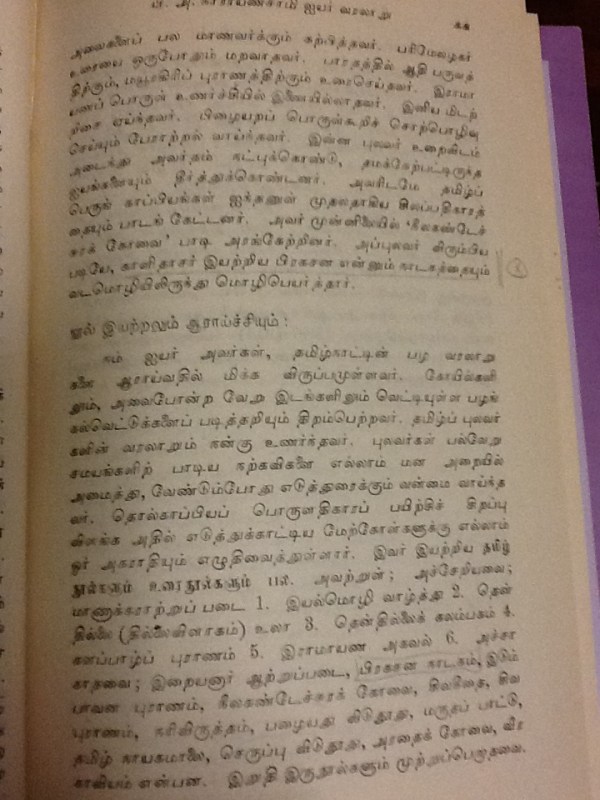 பி. அ. நாராயணசாமி ஐயர் வரலாறு
கக
அவைகளைப் பல மாணவர்க்கும் கற்பித்தவர். பரிமேலழகர்
உரையை ஒருபோதும் மறவாதவர். பாரதத்தில் ஆதி பருவத்
திற்கும், புராணத்திற்கும் உரைசெய்தவர். இராமா
யணப் பொருள் உணர்ச்சியில் இணையில்லாதவர். இனிய மிடற்
றிசை ஏய்ந்தவர். பிழையறப் பொருள்கூறிச் சொற்பொழிவு
செய்யும் பேராற்றல் வாய்ந்தவர். இன்ன புலவர் உறைவிடம்
அடைந்து அவர்தம் நட்புக்கொண்டு, தமக்கேற்பட்டிருந்த
ஐயங்களையும் தீர்த்துக்கொண்டனர். அவரிடமே தமிழ்ப்
பெருங் காப்பியங்கள் ஐந்தனுள் முதலதாகிய சிலப்பதிகாரத்
தையும் பாடங் கேட்டனர். அவர் முன்னிலையில் 'நீலகண்டேச்
சுரக் கோவை' பாடி அரங்கேற்றினர். அப்புலவர் விரும்பிய
படியே, காளிதாசர் இயற்றிய பிரகசன என்னும் நாடகத்தையும்
வடமொழியிலிருந்து மொழிபெயர்த்தார்.
நூல் இயற்றலும் ஆராய்ச்சியும் :
நம் ஐயர் அவர்கள், தமிழ்நாட்டின் பழ வரலாறு
களை ஆராய்வதில் மிக்க விருப்பமுள்ளவர். கோயில்களி
லும், அவைபோன்ற வேறு இடங்களிலும் வெட்டியுள்ள பழங்
கல்வெட்டுக்களைப் படித்தறியும் திறம்பெற்றவர். தமிழ்ப் புலவர்
களின் வரலாறும் நன்கு உணர்ந்தவர். புலவர்கள் பல்வேறு
சமயங்களிற் பாடிய நற்கவிகளை எல்லாம் மன அறையில்
அமைத்து, வேண்டும்போது எடுத்துரைக்கும் வன்மை வாய்ந்த
வர். தொல்காப்பியப் பொருளதிகாரப் பயிற்சிச் சிறப்பு
விளங்க அதில் எடுத்துக்காட்டிய மேற்கோள்களுக்கு எல்லாம்
ஓர் அகராதியும் எழுதிவைத்துள்ளார். இவர் இயற்றிய தமிழ்
நூல்களும் உரைநூல்களும் பல. அவற்றுள் ; அச்சேறியவை ;
மாணாக்கராற்றுப் படை 1. இயல்மொழி வாழ்த்து 2. தென்
தில்லை (தில்லைவிளாகம்) உலா 3. தென்தில்லைக் கலம்பகம் 4.
களப்பாழ்ப் புராணம் 5. இராமாயண அகவல் 6. அச்சா
காதவை ; இறையனார் ஆற்றுப்படை, பிரகசன நாடகம், இடும்
பாவன புராணம், நீலகண்டேச்சுரக் கோவை, சிவகீதை, சிவ
புராணம், நரிவிருத்தம், பழையது விடுதூது, மருதப் பாட்டு,
தமிழ் நாயகமாலை, செருப்பு விடுதூது, அரதைக் கோவை, வீர
காவியம் என்பன. இறுதி இருநூல்களும் முற்றுப்பெறாதவை.